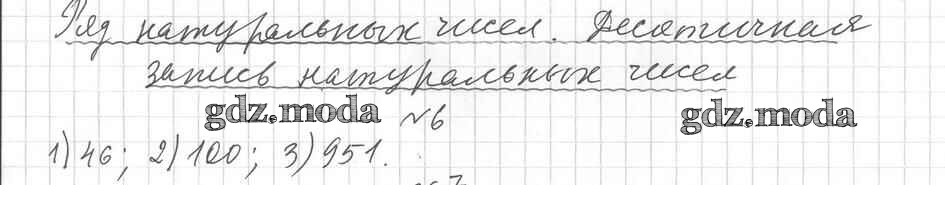 Ряд натуральных чисел. Десятичная
запись натуральных чисел
gdz.moda №6 gdz.moda
1) 46; 2) 100; 3) 951.